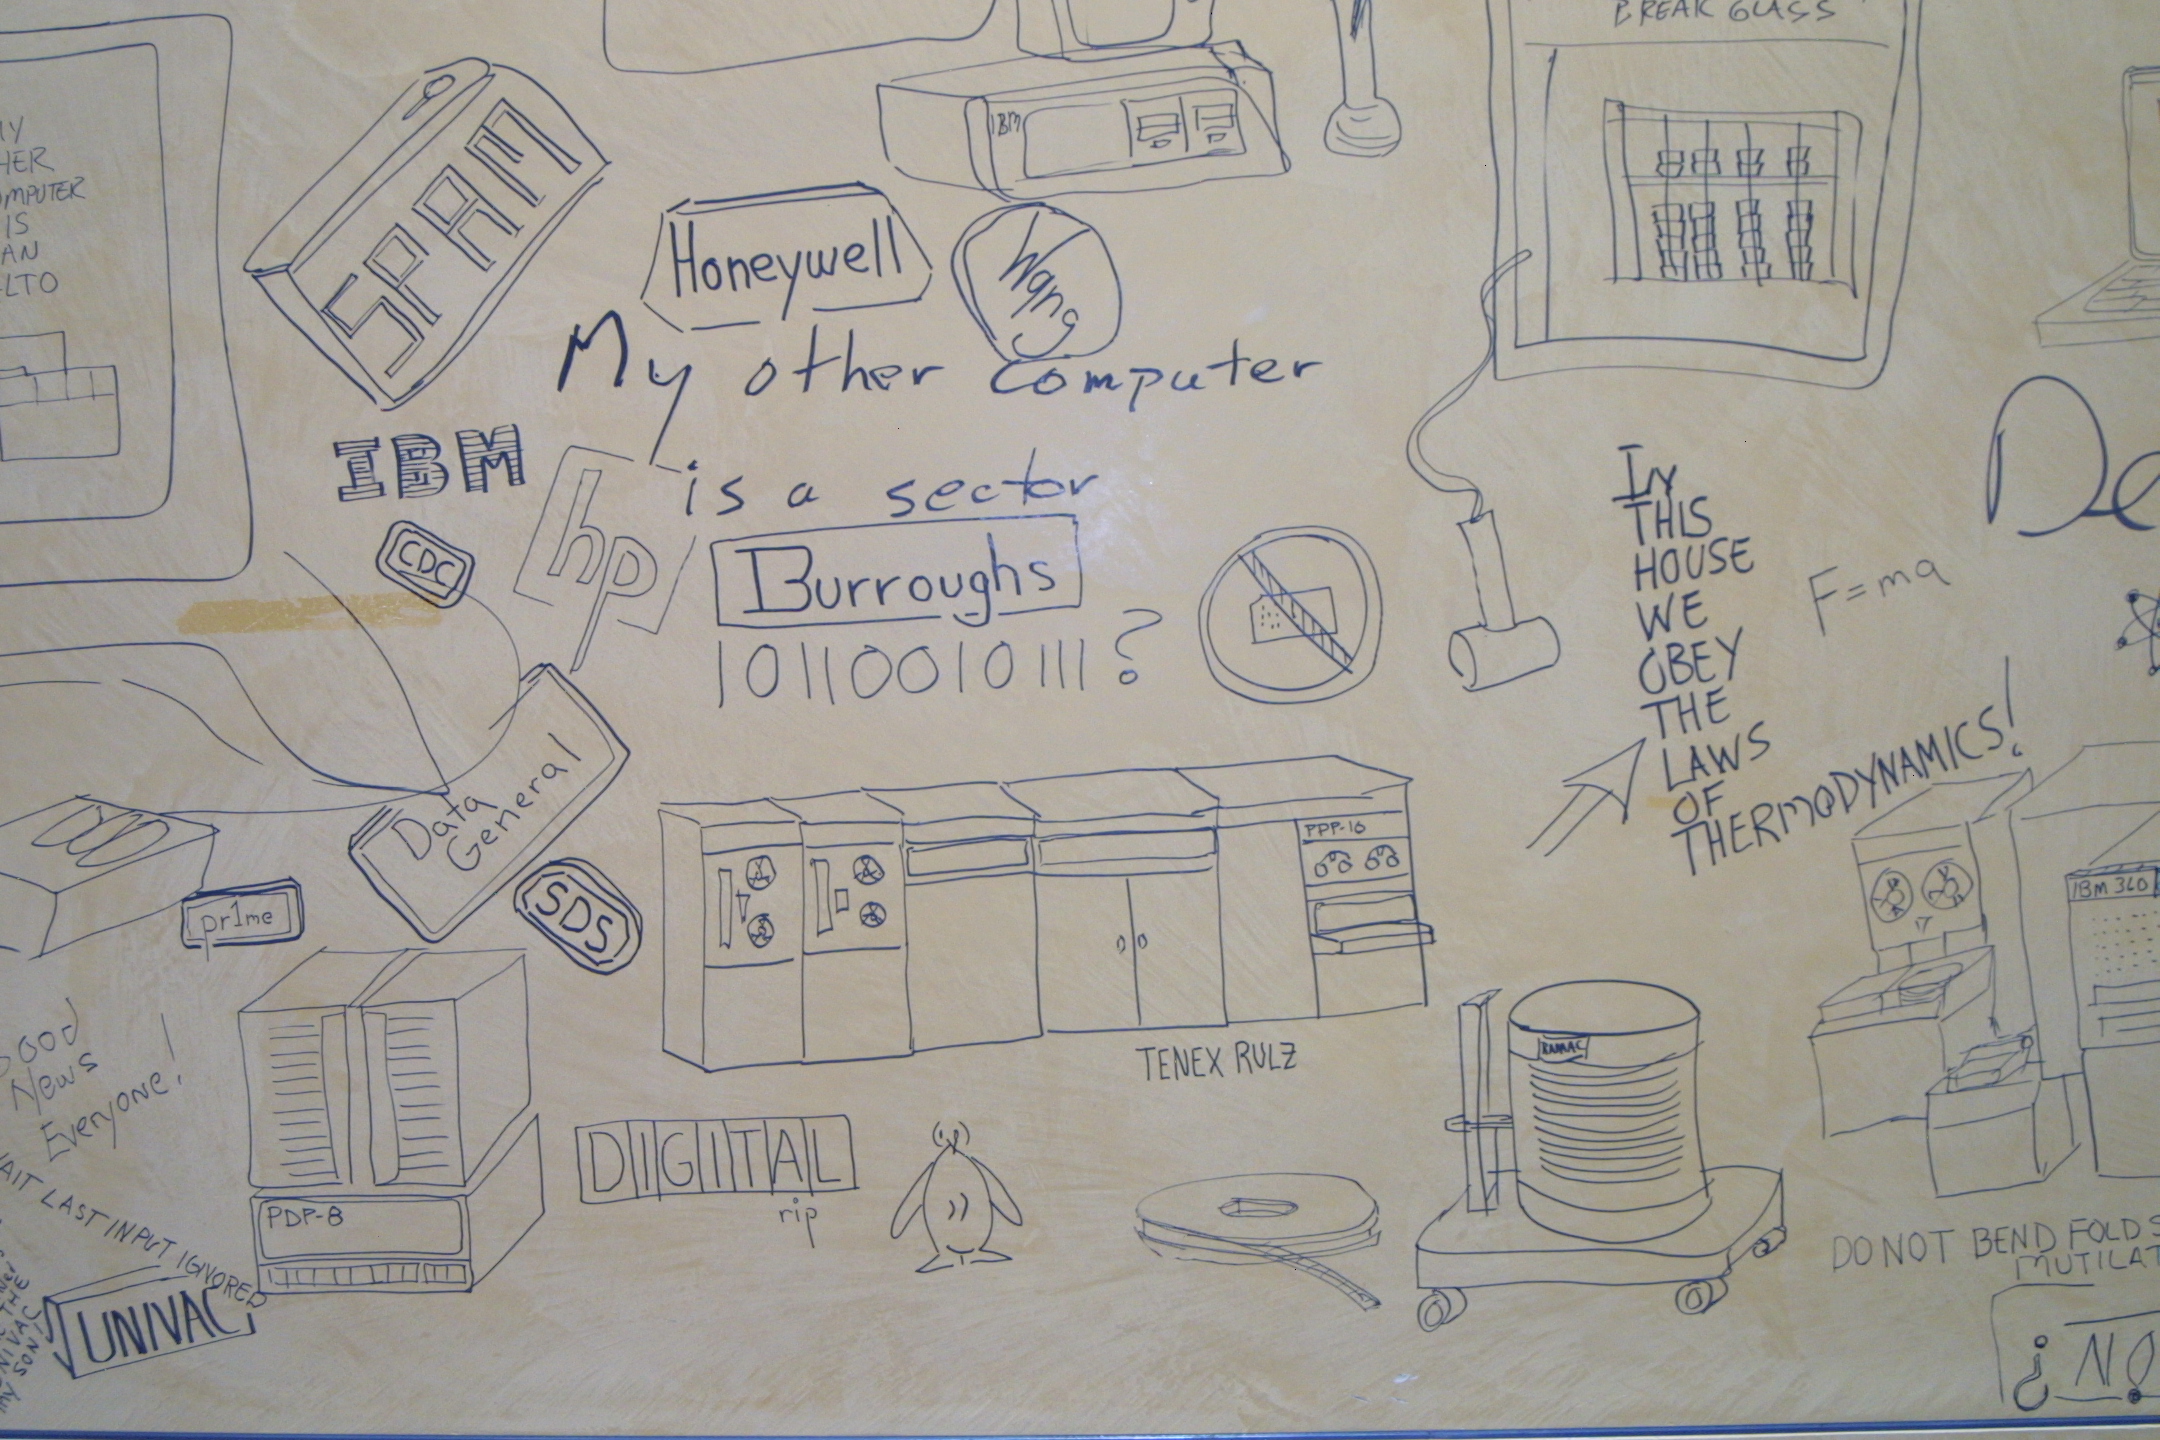 BREAK GLASS
IBM
HER
COMPUTER
IS
AN
SPAM
Honeywell
Wang
My other computer
is a sector
IBM
hp
CDC
Burroughs
10110010111?
IN
THIS
HOUSE
WE
OBEY
THE
LAWS
OF
THERMODYNAMICS!
F=ma
De
Data
General
SDS
pr1me
PDP-10
IBM 360
RAMAC
TENEX RULZ
Good
News
Everyone!
WAIT LAST INPUT IGNORED
PDP-8
DIGITAL
rip
UNIVAC
DO NOT BEND FOLD S
MUTILAT
¿NO